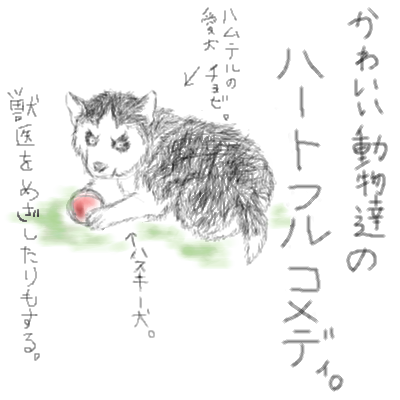 かわいい動物達の
ハートフルコメディ。
ハムテルの
愛犬 チョビ。
↙
↑ハスキー犬。
獣医をめざしたりもする。